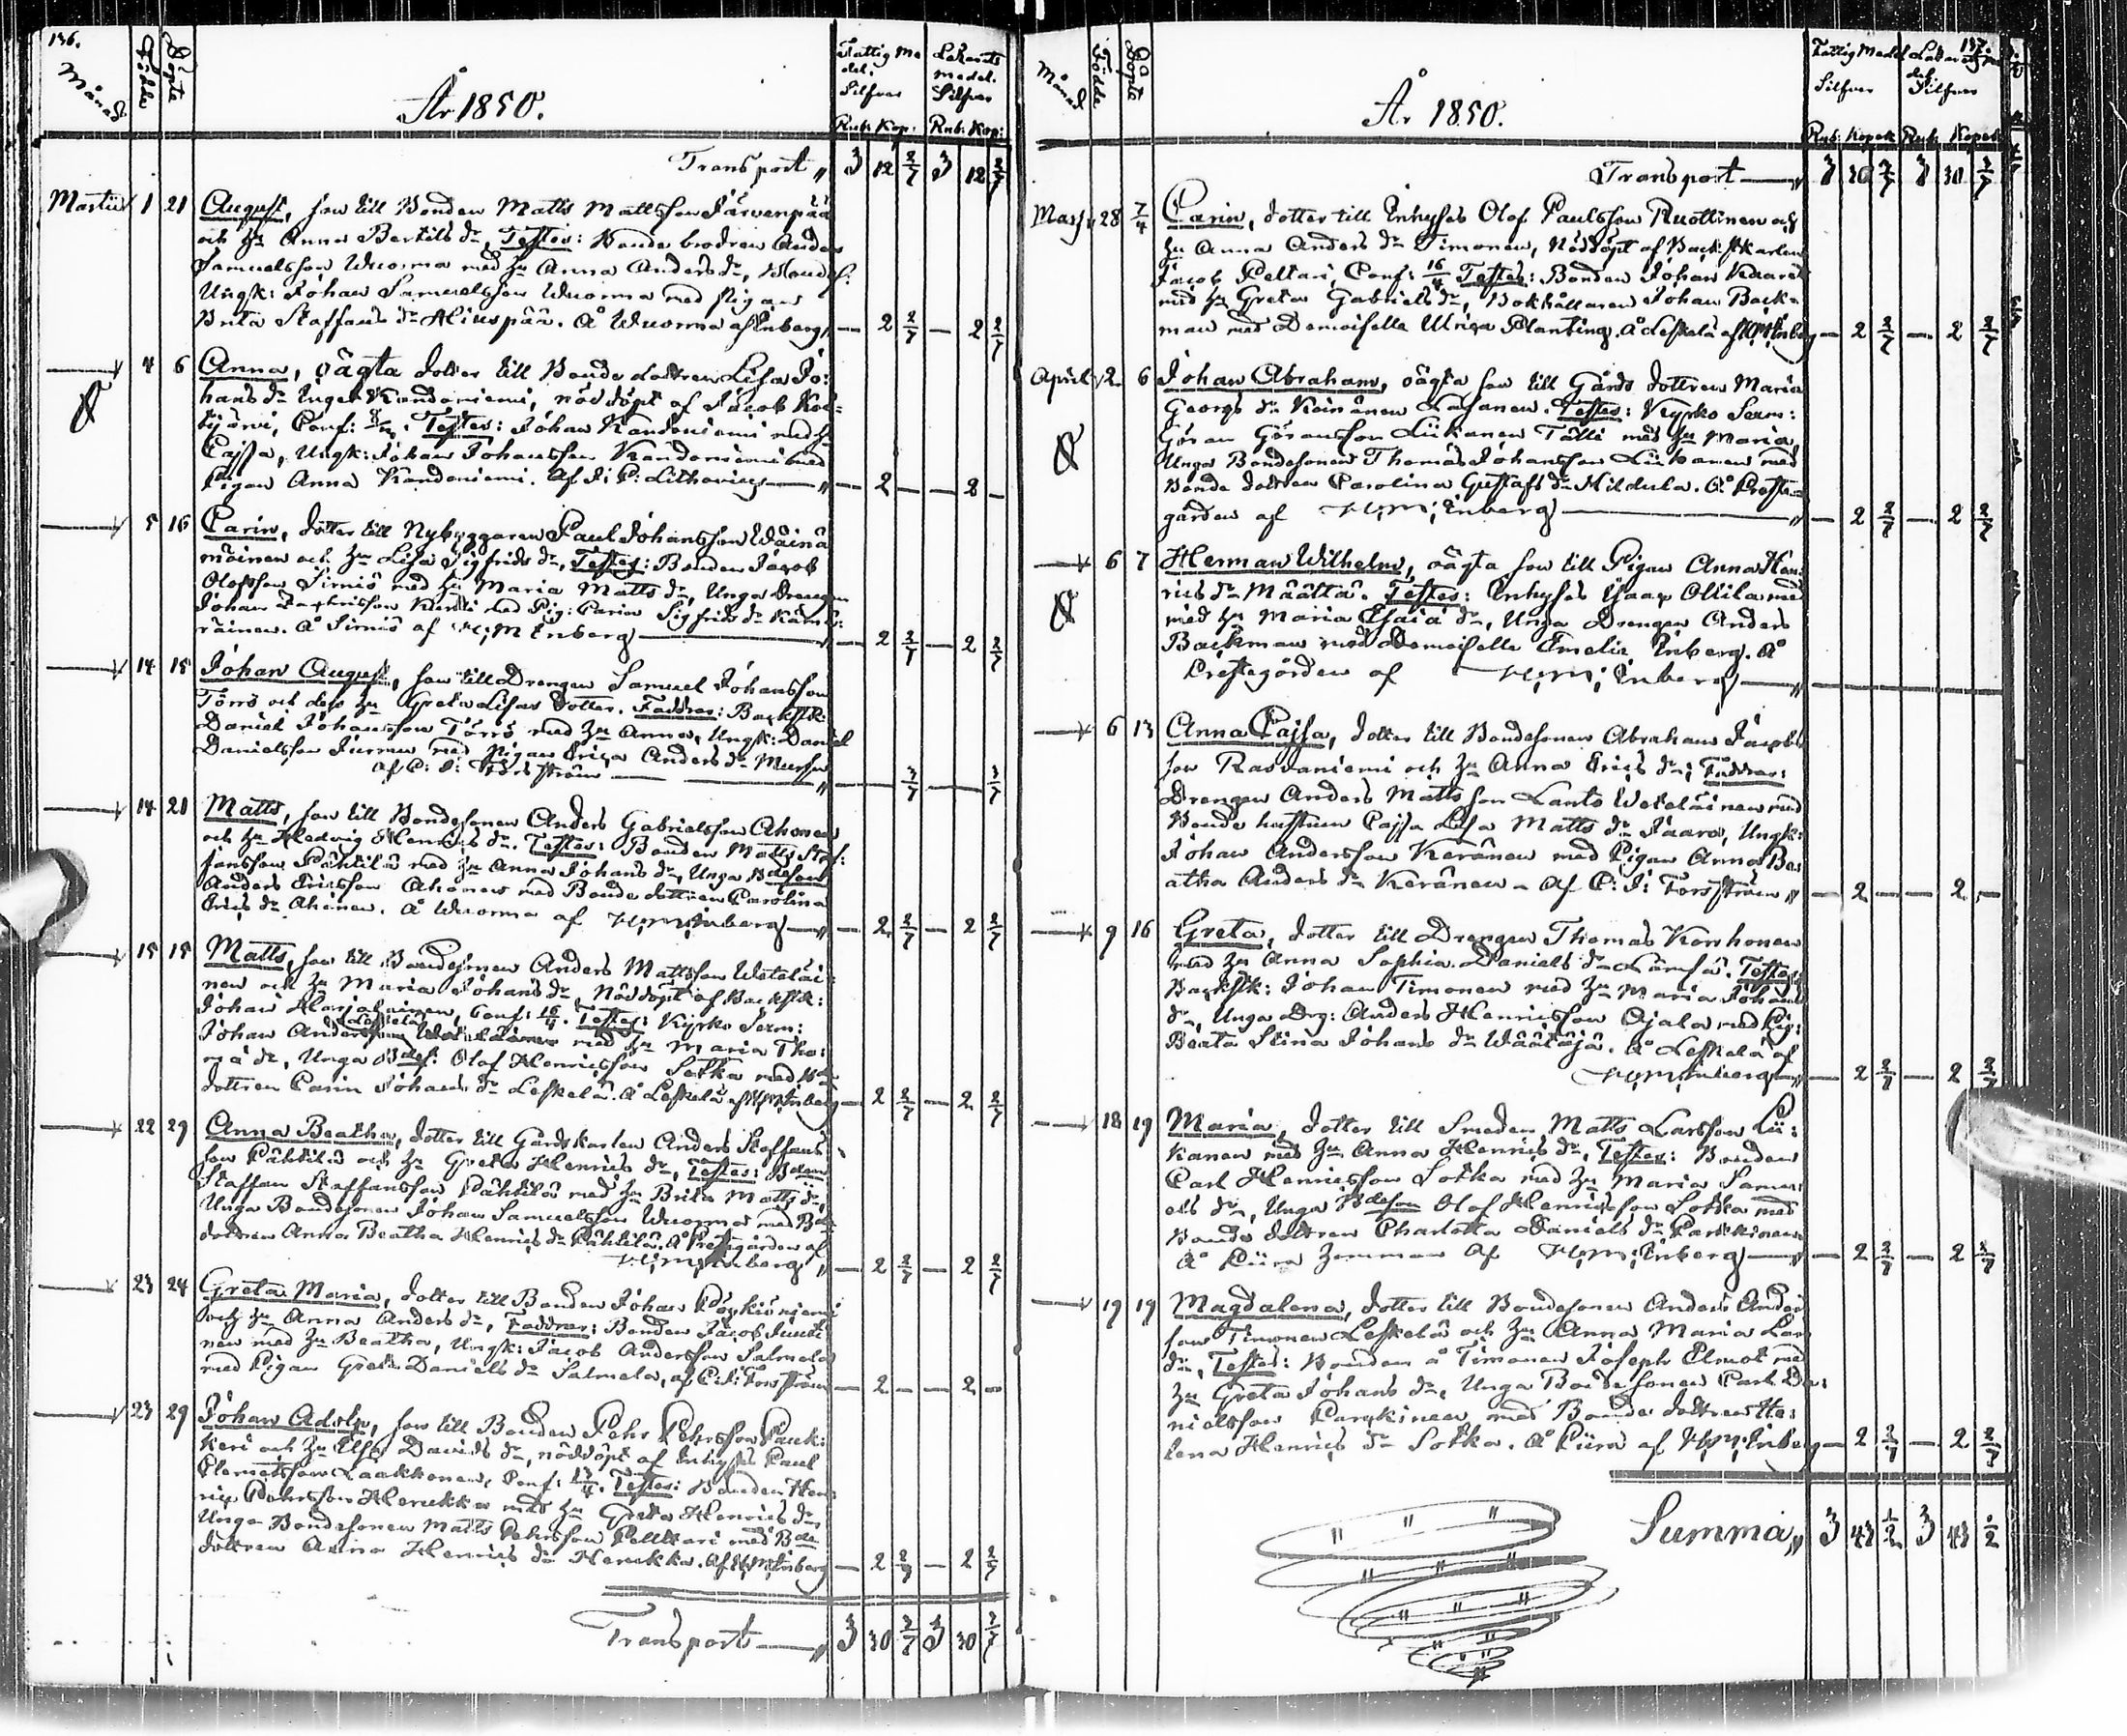 136.
Månad
Födde
Döpte
År 1850.
Fattig Me
del.
Silfver
Rub: Kop:
Lazarets
medel.
Silfver
Rub: Kop:
Transport „ 3 12 2/7 3 12 2/7
Martii 1 21 August, son till Bonden Matts Mattsson Järvenpää
och h:u Anna Bertils dr, Testes: Bonde brodren Anders
Samuelsson Wuorma med h:u Anna Anders dr,
Ungk: Johan Samuelsson Wuorma med pigan
Brita Staffans dr Hiuspää. Å Wuorma af Enberg „ — 2 2/7 — 2 2/7
4 6 Anna, oägta dotter till Bonde dottren Lisa Jo:
hans dr Kandoniemi, nöddöpt af Jacob
Conf: Testes: Johan Kandoniemi med h:u
Cajsa, Ungk: Johan Johansson Kandoniemi med
Pigan Anna Kandoniemi. Af J: P: Lithovius „ — 2 — — 2 —
5 16 Carin, dotter till Nybyggaren Paul Johansson Wäinä
mäinen och h:u Lisa Sigfrids dr, Testes: Bonden Jacob
Olofsson Sirniö med h:u Maria Matts dr, Unga Drengen
Johan med Pig: Carin Sigfrids dr
räinen. Å Sirniö af H: M: Enberg „ — 2 2/7 — 2 2/7
14 15 Johan August, son till Drengen Samuel Johansson
Törrö och dess h:u Greta Lisas dotter. Faddrar: Backstk:
Daniel Johansson Törrö med h:u Anna, Ungk: Daniel
Danielsson Jurmu med Pigan Erica Anders dr
af C: J: Forsström — „ — 2/7 — 2/7
14 21 Matts, son till Bondesonen Anders Gabrielsson Ahonen
och h:u Hedvig Henrics dr. Testes: Bonden Matts Staf:
fansson Pähkilä med h:u Anna Johans dr, Unga Bdeson
Anders Ericsson Ahonen med Bonde dottren Carolina
Erics dr Ahonen. Å Wuorma af H: M: Enberg „ — 2 2/7 — 2 2/7
15 15 Matts, son till Bondesonen Anders Mattsson Wateläi:
nen och h:u Maria Johans dr, Nöddöpt af Backstk:
Johan Harjalainen, Conf: Testes: Kyrko
Johan Andersson med h:u Maria Tho:
mä dr, Unga Bdes: Olof Henricsson Sotka med Bde
dottren Carin Johans dr Leskelä. Å Leskelä af H: M: Enberg — 2 2/7 — 2 2/7
22 29 Anna Beatha, dotter till Gårdskarlen Anders Staffans:
son Pähkilä och h:u Greta Henrics dr, Testes: Bden
Staffan Staffansson Pähkilä med h:u Brita Matts dr,
Unga Bondesonen Johan Samuelsson Wuorma med Bde
dottren Anna Beatha Henrics dr Pähkilä. Å Prestgården af
H: M: Enberg „ — 2 2/7 — 2 2/7
23 24 Greta Maria, dotter till Bonden Johan
och h:u Anna Anders dr, Faddrar: Bonden Jacob
nen med h:u Beatha, Ungk: Jacob Andersson Salmela
med Pigan Greta Daniels dr Salmela, af C: J: Forsström — 2 — — 2 —
23 29 Johan Adolp, son till Bonden Pehr Pehrsson Pauk:
keri och h:u Elsa Davids dr, nöddöpt af Inhyses Paul
Clemetsson Laakkonen, Conf: Testes: Bonden Hen:
ric Pehrsson Henukka med h:u Greta Henrics dr,
Unga Bondesonen Matts Pehrsson Pelttari med Bde
dottren Anna Henrics dr Henukka. Af H: M: Enberg — 2 2/7 — 2 2/7
Transport „ 3 30 2/7 3 30 2/7
137.
Månad
Födde
Döpte
År 1850.
Fattig Medel
Silfver
Rub: Kopek
Silfver
Rub: Kopek
Transport — „ 3 30 2/7 3 30 2/7
Mars 28 7/4 Carin, dotter till Inhyses Olof Paulsson Ruottinen och
h:u Anna Anders dr Timonen, Nöddöpt af Backstkarlen
Jacob Peltari, Conf: 16/4 Testes: Bonden Johan
med h:u Greta Gabriels dr, Bokhållaren Johan Back=
man med Demoiselle Ulrica Planting. Å Leskelä af H: M: Enberg — 2 2/7 — 2 2/7
April 2 6 Johan Abraham, oägta son till Gårds dottren Maria
Georgs dr Kainänen Testes: Kyrko
Göran Göransson Liikanen Tälli med h:u Maria,
Unga Bondesonen Thomas Johansson Liikanen med
Bonde dottren Carolina Gustafs dr Hildula. Å Preste=
gården af H: M: Enberg „ — 2 2/7 — 2 2/7
6 7 Herman Wilhelm, oägta son till Pigan Anna Hen:
rics dr Määttä. Testes: Inhyses Isaac Ollila med
med h:u Maria Esaiä dr, Unga Drengen Anders
Backman med Demoiselle Emelie Enberg. Å
Prestegården af H: M: Enberg „
6 13 Anna Cajsa, dotter till Bondesonen Abraham Jacobs
son Rasvaniemi och h:u Anna Erics dr; Faddrar:
Drengen Anders Matts son Lanto Weteläinen med
Bonde hustrun Cajsa Lisa Matts dr Jaara, Ungk:
Johan Andersson Keränen med Pigan Anna Be:
atha Anders dr Keränen — Af C: J: Forsström „ — 2 — — 2 —
9 16 Greta, dotter till Drengen Thomas Korhonen
med h:u Anna Sophia Daniels dr Lämsä. Testes
Backstk: Johan Timonen med h:u Maria Johans
dr, Unga Drg: Anders Henricsson Ojala med Pig:
Beata Stina Johans dr Wäätäjä. Å Leskelä af
H: M: Enberg „ — 2 2/7 — 2 2/7
18 19 Maria, dotter till Smeden Matts Larsson Lii:
kanen med h:u Anna Henrics dr, Testes: Bonden
Carl Henricsson Sotka med h:u Maria Samu:
els dr, Unga Bdeson Olof Henricsson Sotka med
Bonde dottren Charlotta Daniels dr Parkkinen
Å Piira af H: M: Enberg „ — 2 2/7 — 2 2/7
19 19 Magdalena, dotter till Bondesonen Anders Anders
son Timonen Leskelä och h:u Anna Maria Lars
dr, Testes: Bonden å Timonen Joseph med
h:u Greta Johans dr, Unga Bondesonen Carl Da:
nielsson Parckinen med Bonde dottren He:
lena Henrics dr Sotka. Å Piira af H: M: Enberg — 2 2/7 — 2 2/7
Summa „ 3 43 1/2 3 43 1/2